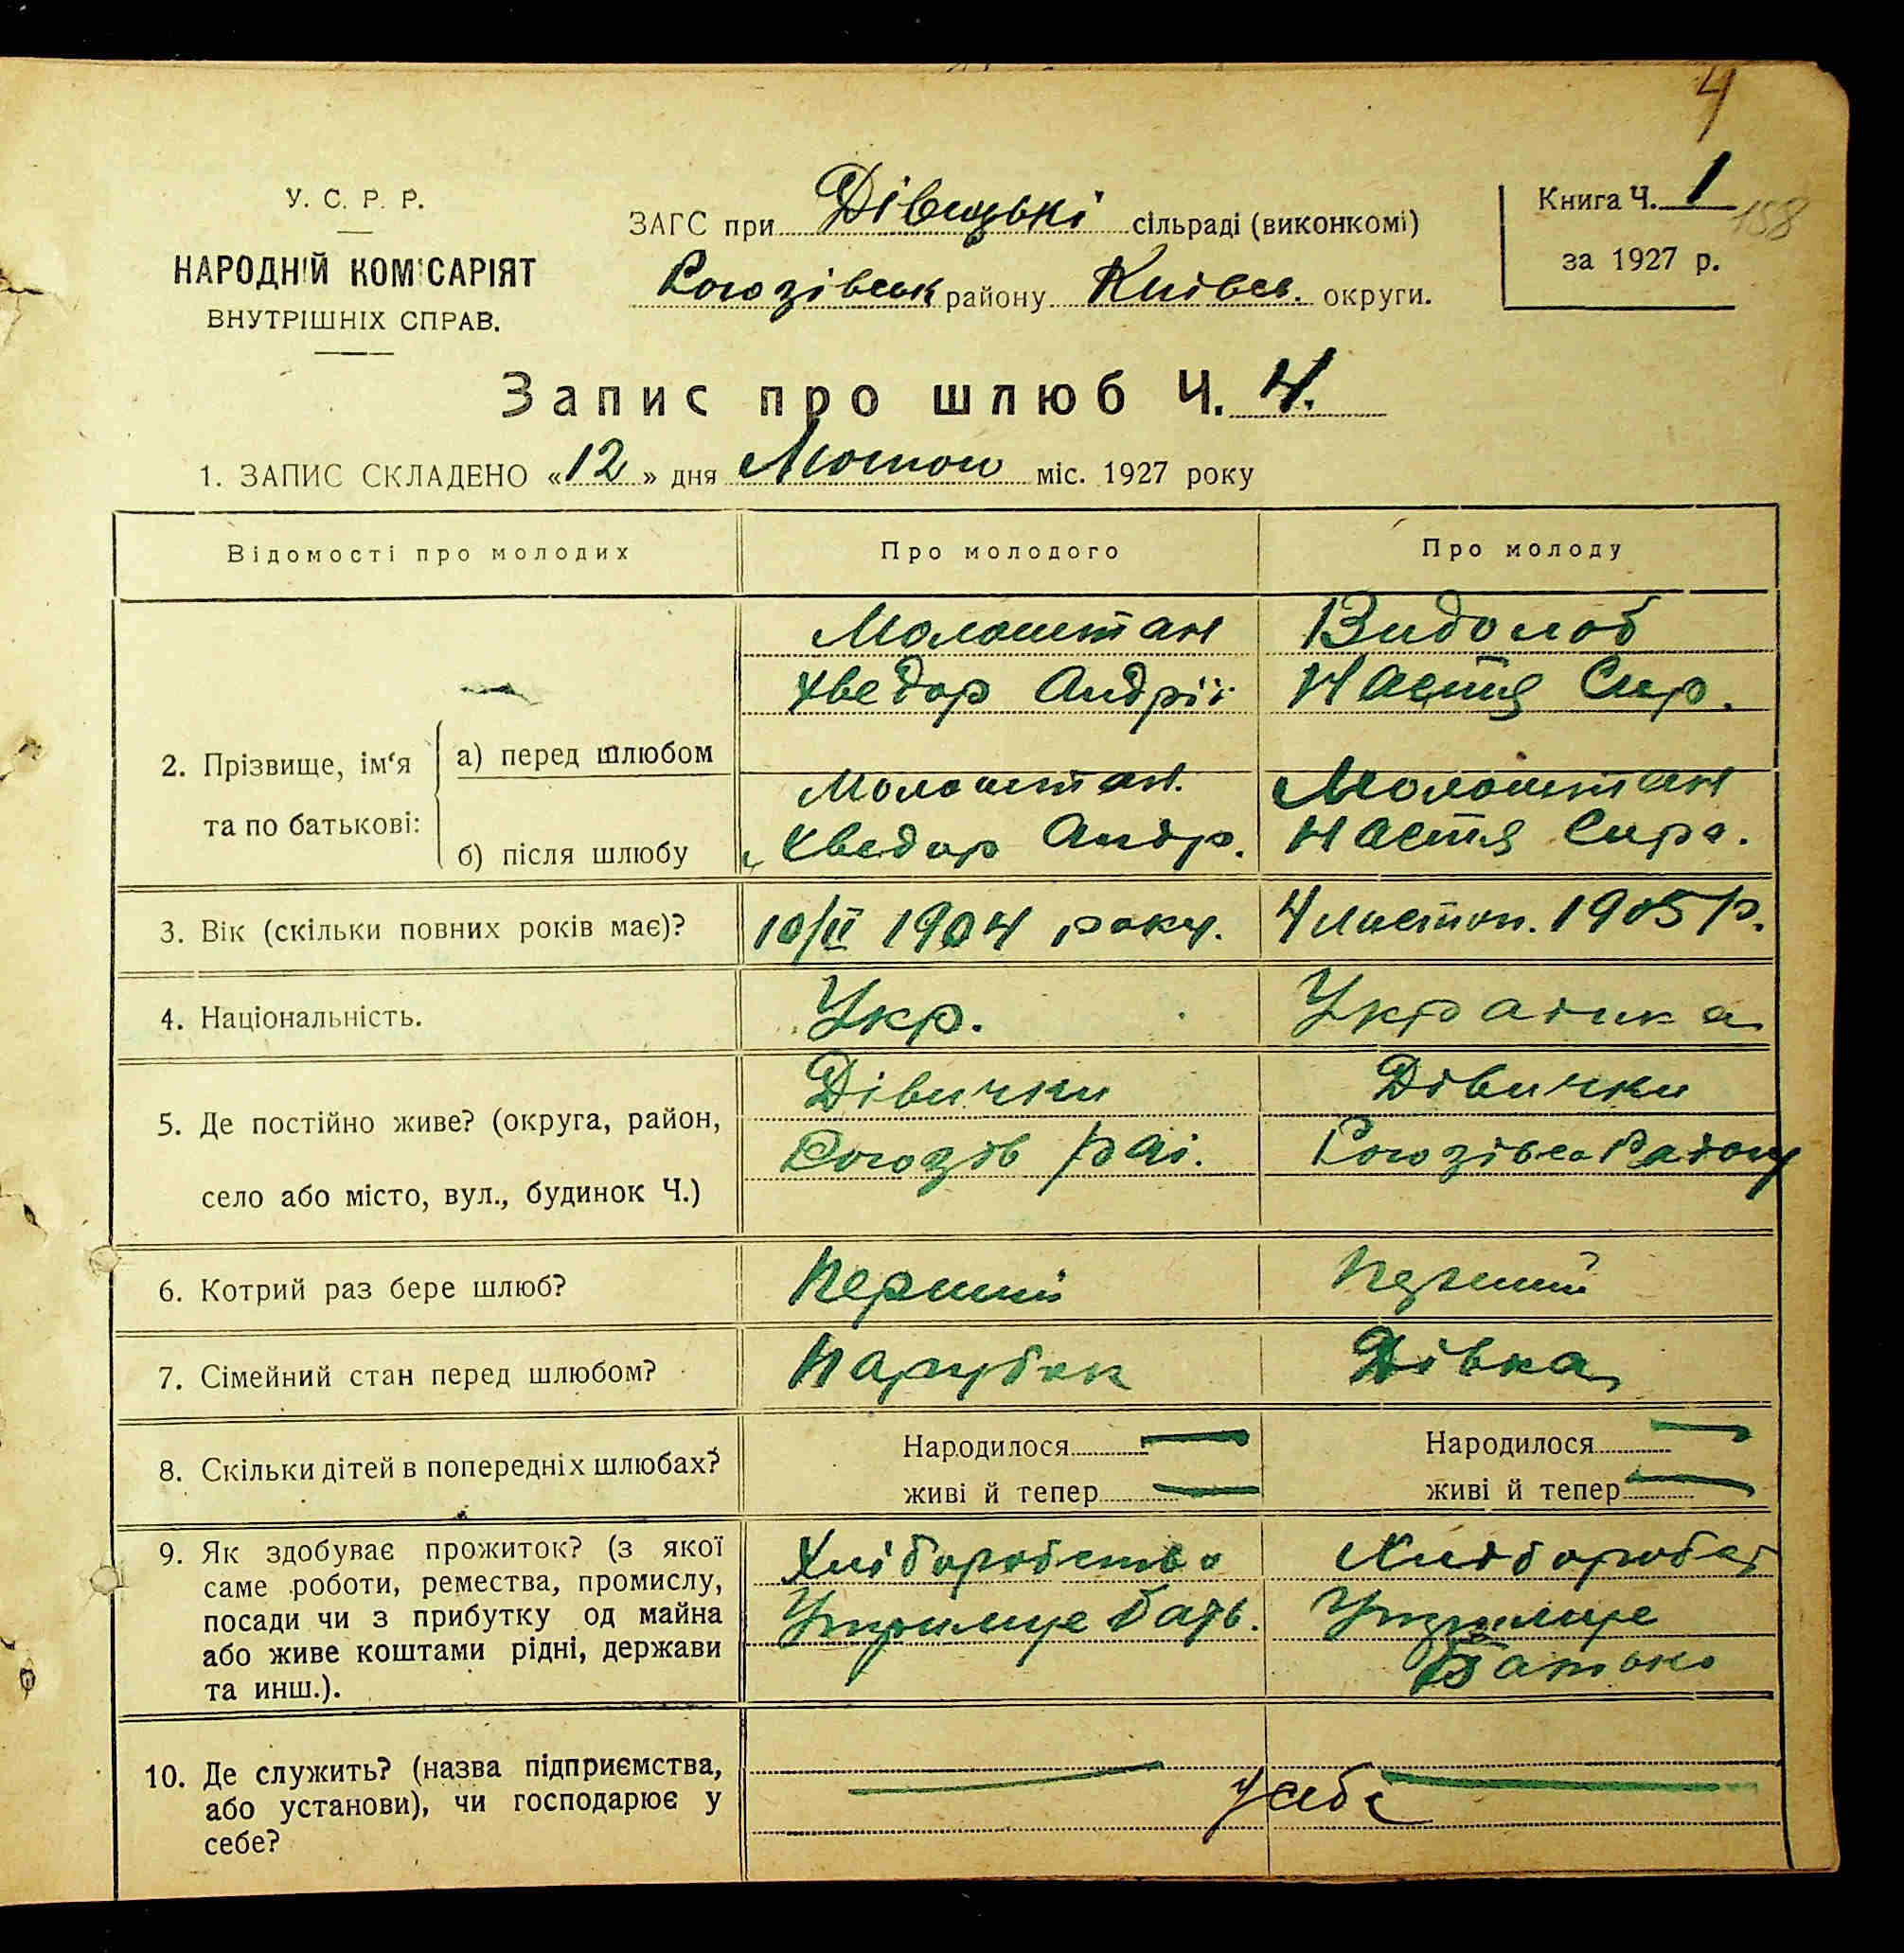 4
У. С. Р. Р.
НАРОДНІЙ КОМІСАРІЯТ
ВНУТРІШНІХ СПРАВ.
ЗАГС при Дівицькі сільраді (виконкомі)
Союзівськ району Київсь. округи.
Книга Ч. 1
158
за 1927 р.
Запис про шлюб Ч. 4.
1. ЗАПИС СКЛАДЕНО «12» дня Лютого міс. 1927 року
Відомості про молодих Про молодого Про молоду
2. Прізвище, ім'я та по батькові:
а) перед шлюбом
Молоштан
Хведор Андрії.
Видолоб
Настя Спир.
б) після шлюбу
Молоштан.
Хведор Андр.
Молоштан
Настя Спир.
3. Вік (скільки повних років має)? 10/ІІ 1904 року. 4 листоп. 1905 р.
4. Національність. Укр. Українка
5. Де постійно живе? (округа, район,
село або місто, вул., будинок Ч.)
Дівички
Союзів раі.
Дівички
Союзівсь Району
6. Котрий раз бере шлюб? Перший Перший
7. Сімейний стан перед шлюбом? Парубок Дівка
8. Скільки дітей в попередніх шлюбах?
Народилося — Народилося —
живі й тепер — живі й тепер —
9. Як здобуває прожиток? (з якої
саме роботи, ремества, промислу,
посади чи з прибутку од майна
або живе коштами рідні, держави
та инш.).
Хліборобство
Утримує Бать.
Хліборобст
Утримує
Батько
10. Де служить? (назва підприємства,
або установи), чи господарює у
себе?
у себе